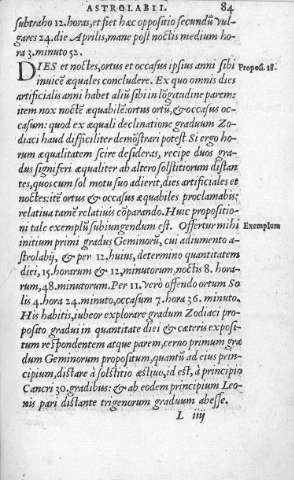 ASTROLABII. 84
subtraho 12. horas, et fiet hæc oppositio secundũ vul-
gares 24. die Aprilis, mane post noctis medium hora
3. minuto 52.
DIES et noctes, ortus et occasus ipsius anni sibi Propos. 18.
inuicẽ æquales concludere. Ex quo omnis dies
artificialis anni habet aliũ sibi in lõgitudine parem:
item nox noctẽ æquabilẽ: ortus ortũ, & occasus oc-
casum: quod ex æquali declinatione graduum Zo-
diaci haud difficiliter demõstrari potest Si ergo ho-
rum æqualitatem scire desideras, recipe duos gra-
dus signiferi æqualiter ab altero solstitiorum distan
tes, quos cum sol motu suo adierit, dies artificiales et
noctes: itẽ ortus & occasus æquabiles proclamabis;
relatiua tamẽ relatiuis cõparando. Huic propositio-
ni tale exemplũ subiungendum est. Offertur mihi Exemplum
initium primi gradus Geminorũ, cui adiumento a-
strolabij, & per 12. huius, determino quantitatem
diei, 15. horarum & 12. minutorum, noctis 8. hora-
rum, 48. minutorum. Per 11. verò offendo ortum So
lis 4. hora 24. minuto, occasum 7. hora 36. minuto.
His habitis, iubeor explorare gradum Zodiaci pro-
posito gradui in quantitate diei & cæteris exposi-
tum respondentem atque parem, cerno primum gra-
dum Geminorum propositum, quantũ ad eius prin-
cipium, distare à solstitio æstiuo, id est, à principio
Cancri 30. gradibus: & ab eodem principium Leo-
nis pari distante trigenorum graduum abesse.
L iiij